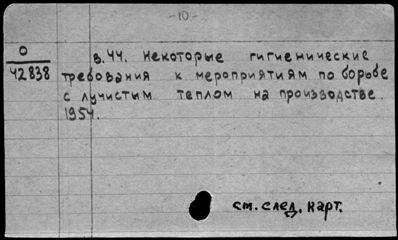 -10-
О
42838
в.44. Некоторые гигиенические
требования к мероприятиям по борьбе
с лучистым теплом на производстве.
1954.
см. след. карт.